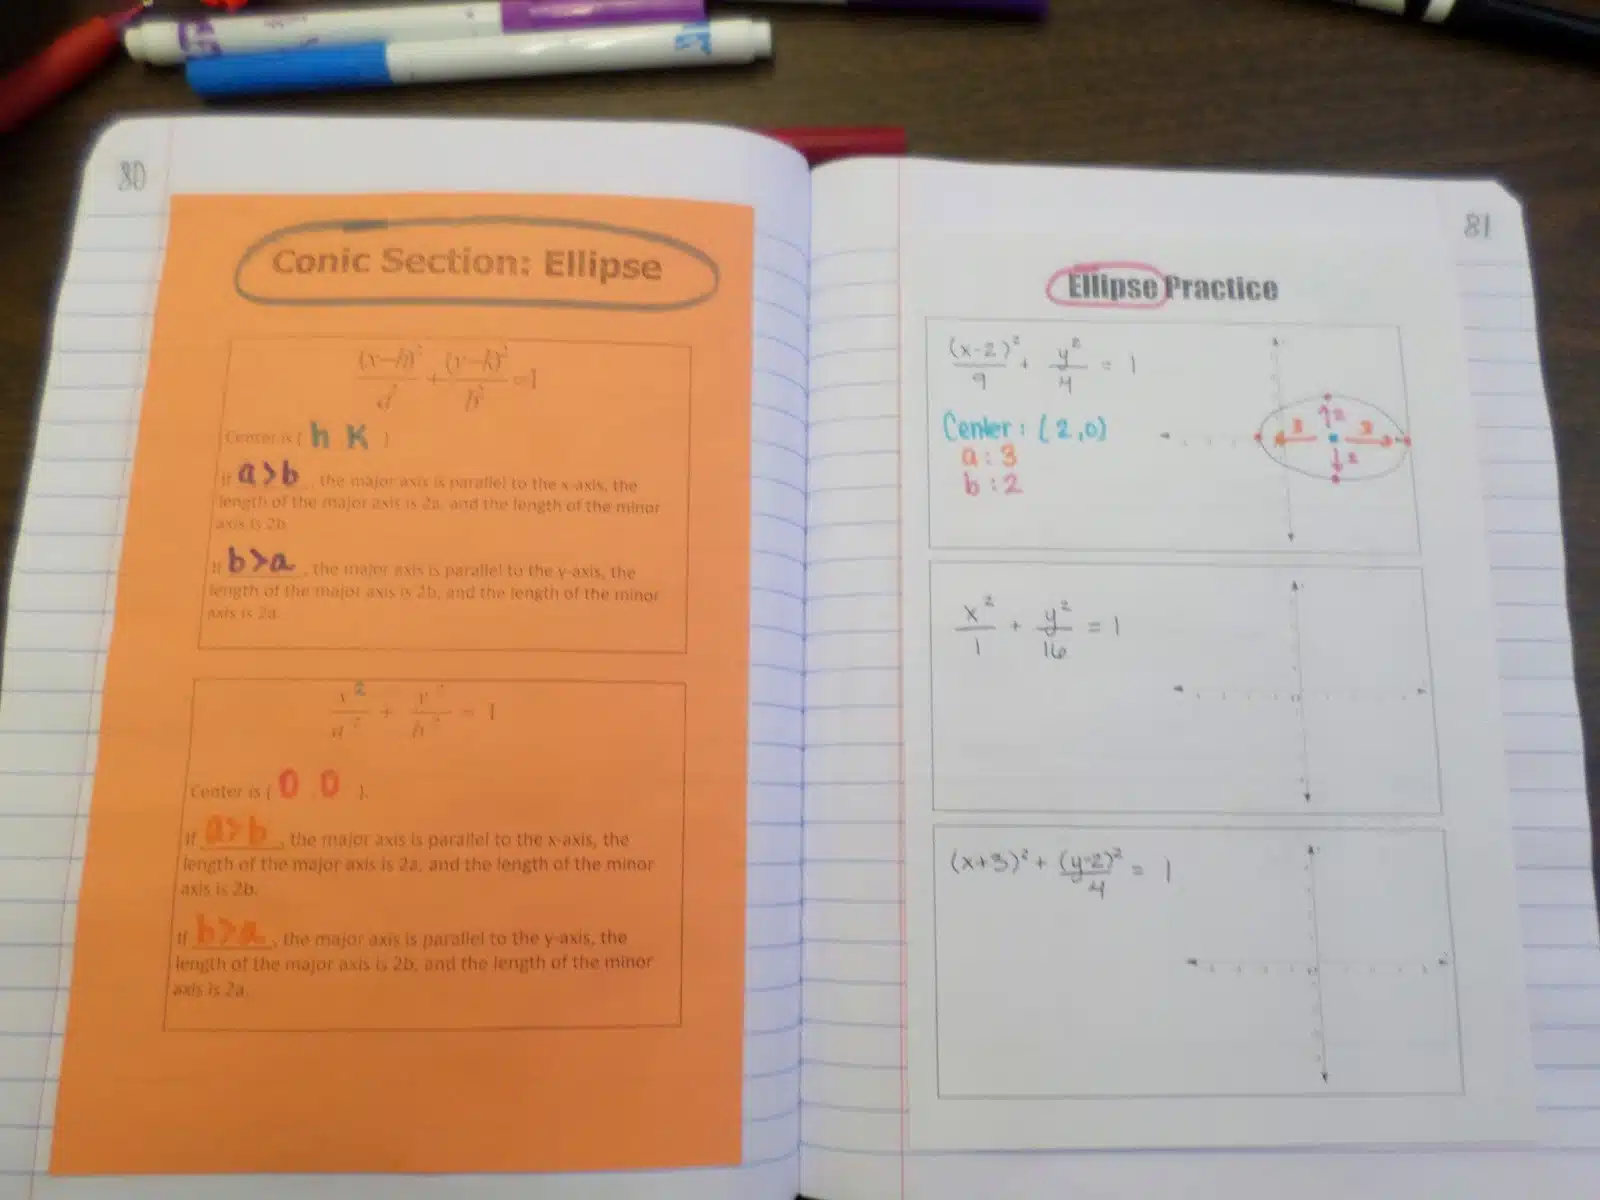 80
Conic Section: Ellipse
(x-h)²/a² + (y-k)²/b² = 1
Center is ( h K )
If a>b, the major axis is parallel to the x-axis, the
length of the major axis is 2a, and the length of the minor
axis is 2b.
If b>a, the major axis is parallel to the y-axis, the
length of the major axis is 2b, and the length of the minor
axis is 2a.
x²/a² + y²/b² = 1
Center is ( 0 , 0 ).
If a>b, the major axis is parallel to the x-axis, the
length of the major axis is 2a, and the length of the minor
axis is 2b.
If b>a, the major axis is parallel to the y-axis, the
length of the major axis is 2b, and the length of the minor
axis is 2a.
81
Ellipse Practice
(x-2)²/9 + y²/4 = 1
Center : (2,0)
a : 3
b : 2
2
3 3
2
x²/1 + y²/16 = 1
(x+3)² + (y-2)²/4 = 1